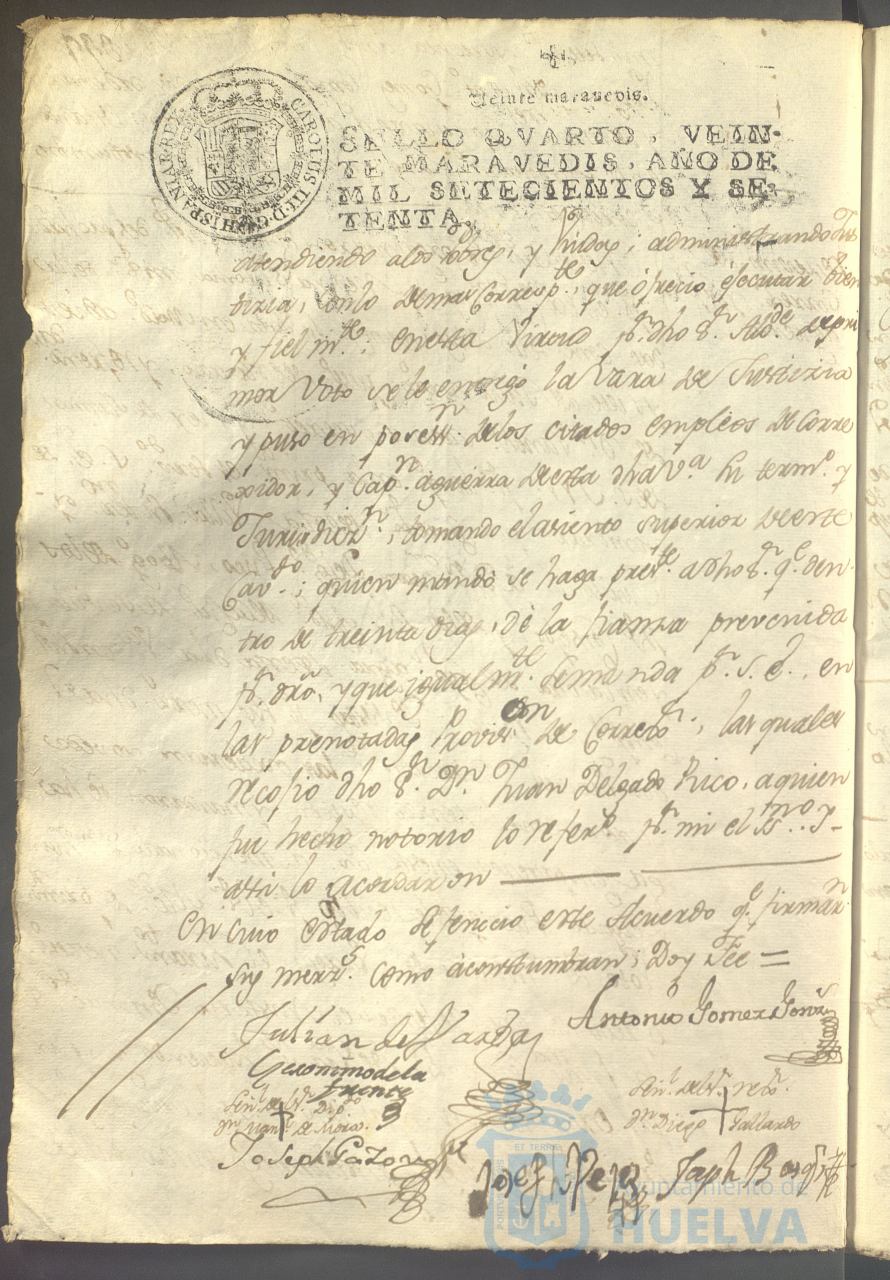 CAROLUS III D G HISPANIAR REX
Veinte maravedis.
SELLO QVARTO, VEIN-
TE MARAVEDIS, AÑO DE
MIL SETECIENTOS Y SE-
TENTA.
atendiendo a los Pobres, y Viudas; administrando Jus
tizia, en lo demas Correspte. que ofrecio ejecutar bien
y fielmte.; en esta Virtud pr. dho Sr. de pri
mer Voto se le entregó la Vara de Justizia
y puso en posesn. de los citados empleos de Corre
xidor, y Capn. a guerra de esta dha Va. su termo. y
Jurisdiczn., tomando el asiento superior de este
Cavdo.; quien mandó se haga preste. a dho Sr. qe. den-
tro de treinta dias, dé la fianza prevenida
pr. dro, y que igualmte. se manda pr. S. E., en
las prenotadas Provisn de Corregr., las quales
recojio dho Sr. Dn. Juan Delgado Rico, a quien
fue hecho notorio lo refero. pr. mi el Essno. Y
assi lo acordaron
En cuio estado se fenecio este Acuerdo qe. firman
sus merzs. como acostumbran; Doy Fee =
Antonio Gomez Gonz
Julian de
Geronimo de la
fuente
Señl. del Sr. Dipdo
Dn. Manl. de Mora.
Señl. del Sr. rexr.
Dn. Diego Gallardo
Joseph
Josef
Joseph
ET TERRAE
Ayuntamiento de
HUELVA